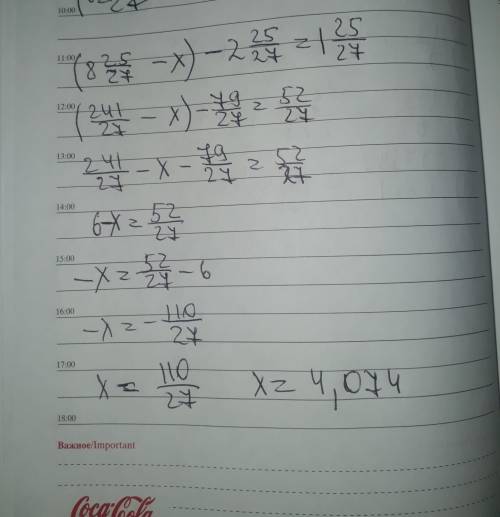 27
10:00
11:00 (8 25/27 - x) - 2 25/27 = 1 25/27
12:00 (241/27 - x) - 79/27 = 52/27
13:00 241/27 - x - 79/27 = 52/27
14:00 6-x = 52/27
15:00 -x = 52/27 - 6
16:00 -x = - 110/27
17:00 x = 110/27 x = 4,074
18:00
Важное/Important
Coca-Cola